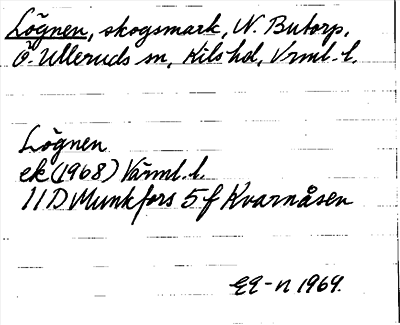 Lögnen, skogsmark, N. Butorp,
Ö. Ulleruds sn, Kils hd, Vrml. l.
Lögnen
ek (1968) Värml. l.
11D Munkfors 5f Kvarnåsen
1969.